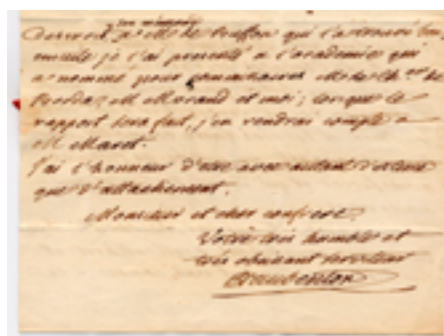 son mémoire
a M. de Buffon qui l'a trouvé bon
ensuite je l'ai presenté a l'academie qui
a nommé pour commissaires M. le Ch.er de
Borda, M. Morand et moi; lorsque le
rapport sera fait, j'en rendrai compte a
M. Maret.
J'ai l'honneur d'etre avec autant d'estime
que d'attachement.
Monsieur et cher confrere,
Votre tres humble et
tres obeissant serviteur
Daubenton